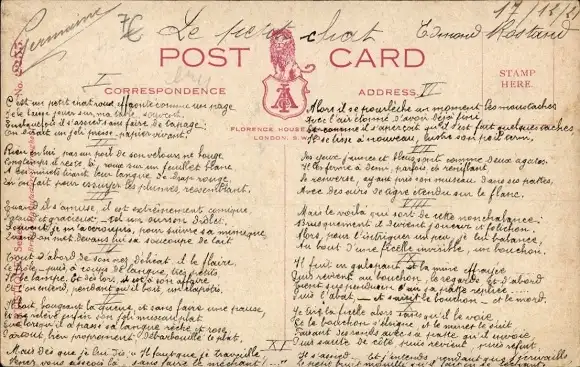 Germaine
Le petit chat
Edmond Rostand
17/12/
POST CARD
CORRESPONDENCE
ADDRESS
STAMP
HERE.
FLORENCE HOUSE
LONDON. S.W.
I
C'est un petit chat noir effronté comme un page
Je le laisse jouer sur ma table souvent.
Quelquefois il s'assied sans faire de tapage;
On dirait un joli presse-papier vivant.
Rien en lui, pas un poil de son velours ne bouge
Longtemps il reste là, noir sur un feuillet blanc
A ces minets tirant leur langue de drap rouge
Qu'on fait pour essuyer les plumes, ressemblant.
Quand il s'amuse, il est extrêmement comique,
Pataud et gracieux, tel un ourson drôlet.
Souvent je m'accroupis pour suivre sa mimique
Quand on met devant lui sa soucoupe de lait
IV
Tout d'abord de son nez délicat il le flaire,
Le frôle, puis, à coups de langue très petits
Il le lampe. Et dès lors il est à son affaire
Et l'on entend, pendant qu'il boit, un clapotis.
V
Il boit, bougeant la queue et sans faire une pause,
Et ne relève enfin son joli museau plat
Que lorsqu'il a passé sa langue rêche et rose
Partout, bien proprement débarbouillé le plat.
VI
Alors il se pourlèche un moment les moustaches
Avec l'air étonné d'avoir déjà fini
Et comme il s'aperçoit qu'il s'est fait quelques taches,
Il se lisse à nouveau, lustre son poil terni.
VII
Ses yeux jaunes et bleus sont comme deux agates.
Il les ferme à demi, parfois en reniflant
Se renverse, ayant pris son museau dans ses pattes,
Avec des airs de tigre étendu sur le flanc.
VIII
Mais le voilà qui sort de cette nonchalance,
Brusquement il devient joueur et folichon.
Alors, pour l'intriguer un peu, je lui balance,
Au bout d'une ficelle invisible, un bouchon.
IX
Il fuit en galopant et la mine effrayée
Puis revient au bouchon, le regarde et d'abord
Tient suspendue en l'air sa patte repliée
Puis l'abat, et saisit le bouchon et le mord.
Je tire la ficelle alors sans qu'il le voie,
Et le bouchon s'éloigne et le minet le suit
Faisant des ronds avec sa patte qu'il envoie
Puis saute de côté puis revient, puis refuit.
XI
Mais dès que je lui dis "Il faut que je travaille
Venez vous asseoir là, sans faire le méchant!"
Il s'assied. Et j'entends, pendant que